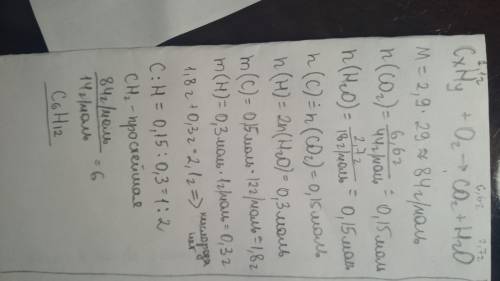 2,1г 6,6г 2,7г
CxHy + O₂ → CO₂ + H₂O
M = 2,9 · 29 ≈ 84г/моль
n(CO₂) = 6,6г / 44г/моль = 0,15моль
n(H₂O) = 2,7г / 18г/моль = 0,15моль
n(C) = n(CO₂) = 0,15моль
n(H) = 2n(H₂O) = 0,3моль
m(C) = 0,15моль · 12г/моль = 1,8г
m(H) = 0,3моль · 1г/моль = 0,3г
1,8г + 0,3г = 2,1г => кислорода нет
C : H = 0,15 : 0,3 = 1 : 2
CH₂ простейшая
84г/моль / 14г/моль = 6
C₆H₁₂